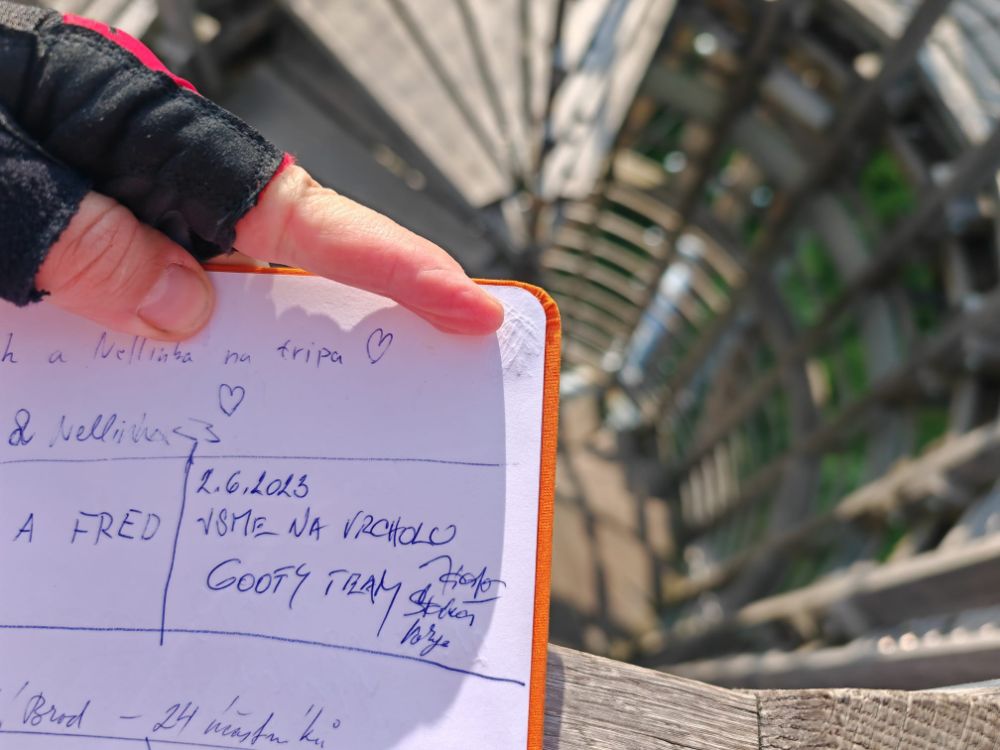 h a Nellinka na tripa ♡
♡
& Nellinka <3
A FRED
2.6.2023
JSME NA VRCHOLU
GOOTY TEAM
Brod - 24 účastníků